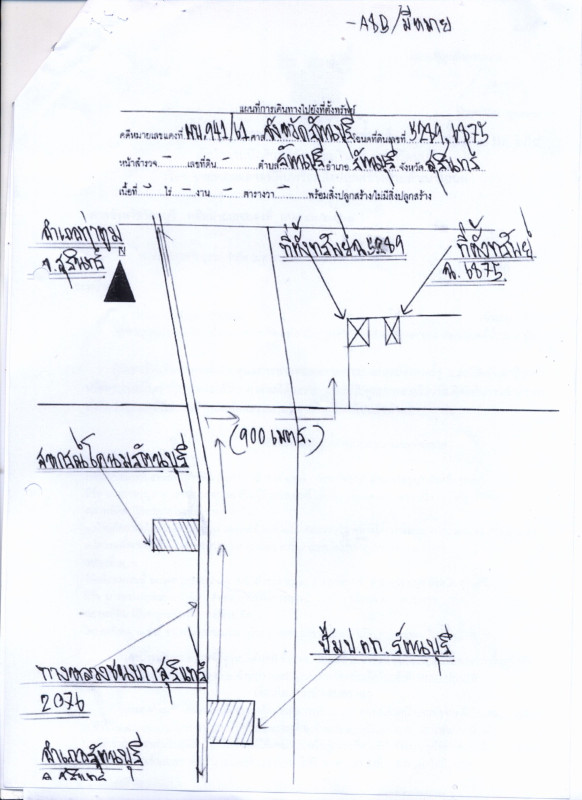 -ASD/มีหมาย
แผนที่การเดินทางไปยังที่ตั้งทรัพย์
คดีหมายเลขแดงที่ ผบ.941/61 ศาล จังหวัดรัตนบุรี โฉนดที่ดินเลขที่ 5289, 6875
หน้าสำรวจ - เลขที่ดิน - ตำบล รัตนบุรี อำเภอ รัตนบุรี จังหวัด สุรินทร์
เนื้อที่ - ไร่ - งาน - ตารางวา - พร้อมสิ่งปลูกสร้าง/ไม่มีสิ่งปลูกสร้าง
อำเภอท่าตูม
จ.สุรินทร์
N
ที่ตั้งทรัพย์ ฉ.5289
ที่ตั้งทรัพย์
ฉ. 6875
(900 เมตร.)
สหกรณ์โคนมรัตนบุรี
ปั๊ม ป.ตท. รัตนบุรี
ทางหลวงชนบทสุรินทร์
2076
อำเภอรัตนบุรี
จ.สุรินทร์